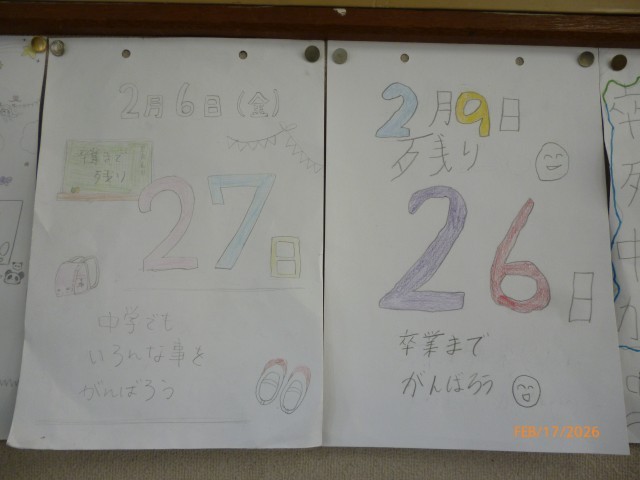 2月6日(金)
卒業まで
残り
27日
中学でも
いろんな事を
がんばろう
2月9日
歹残り
26日
卒業まで
がんばろう
FEB/17/2026